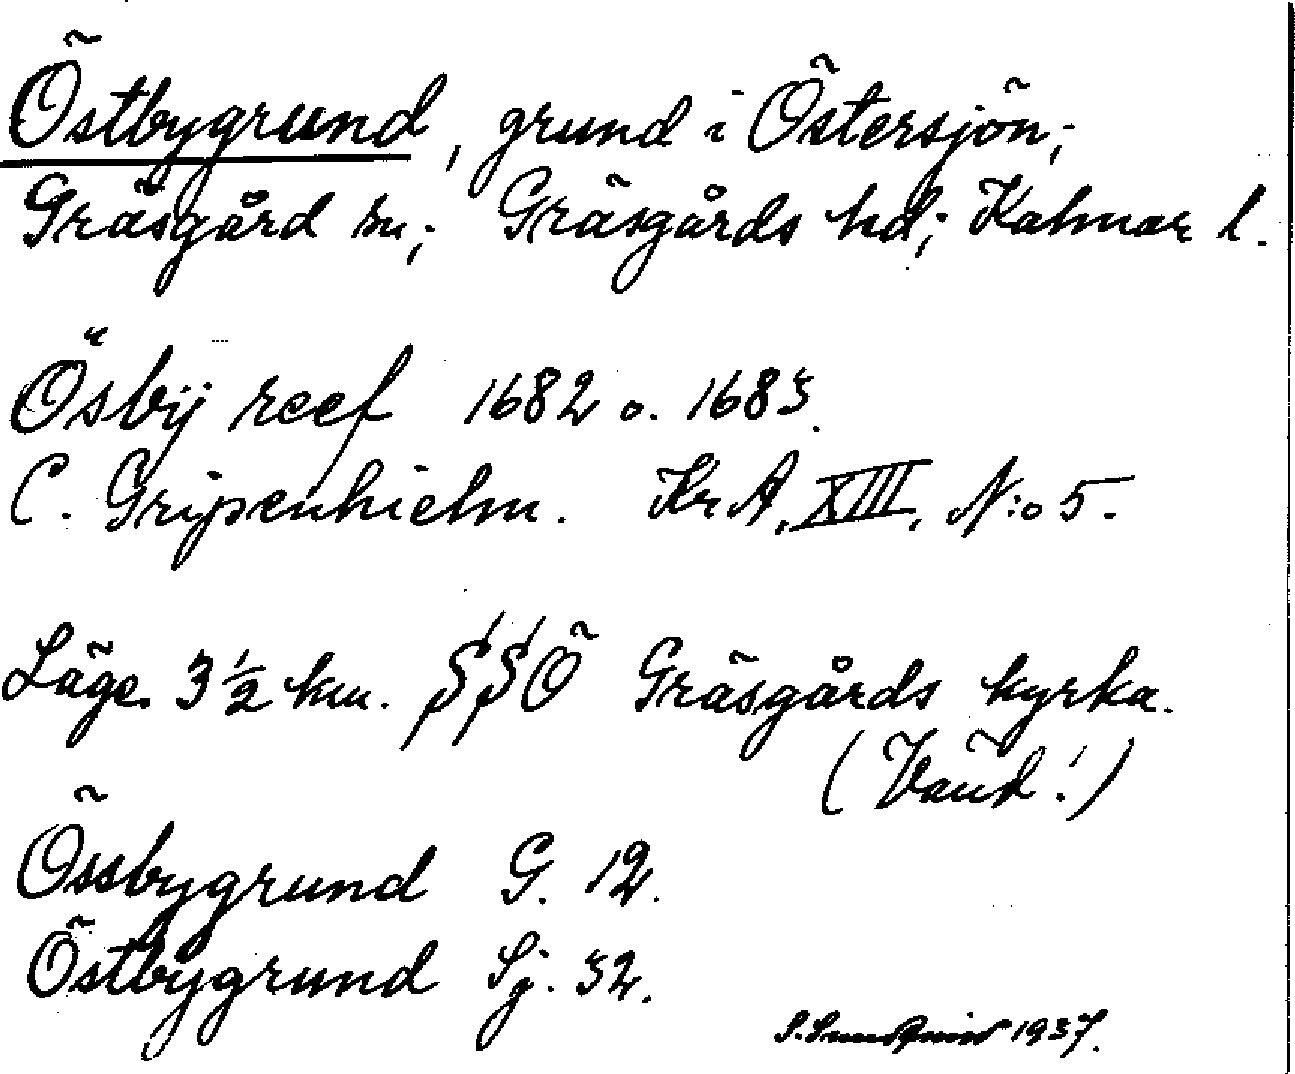 Östbygrund, grund i Östersjön;
Gräsgård sn; Gräsgårds hd; Kalmar l.
Ösbÿ reef 1682 o. 1683.
C. Gripenhielm. Kr A, XIII, N:o 5.
Läge 3 ½ km. SSÖ Gräsgårds kyrka.
(Vänd!)
Össbygrund G. 12.
Östbygrund Sj. 32.
1937.